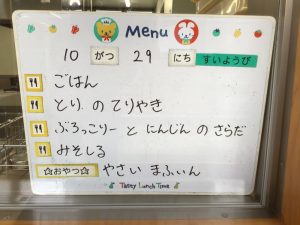 Menu
10 がつ 29 にち すいようび
ごはん
とり の てりやき
ぶろっこりー と にんじん の さらだ
みそしる
☆おやつ☆ やさい まふぃん
Tasty Lunch Time